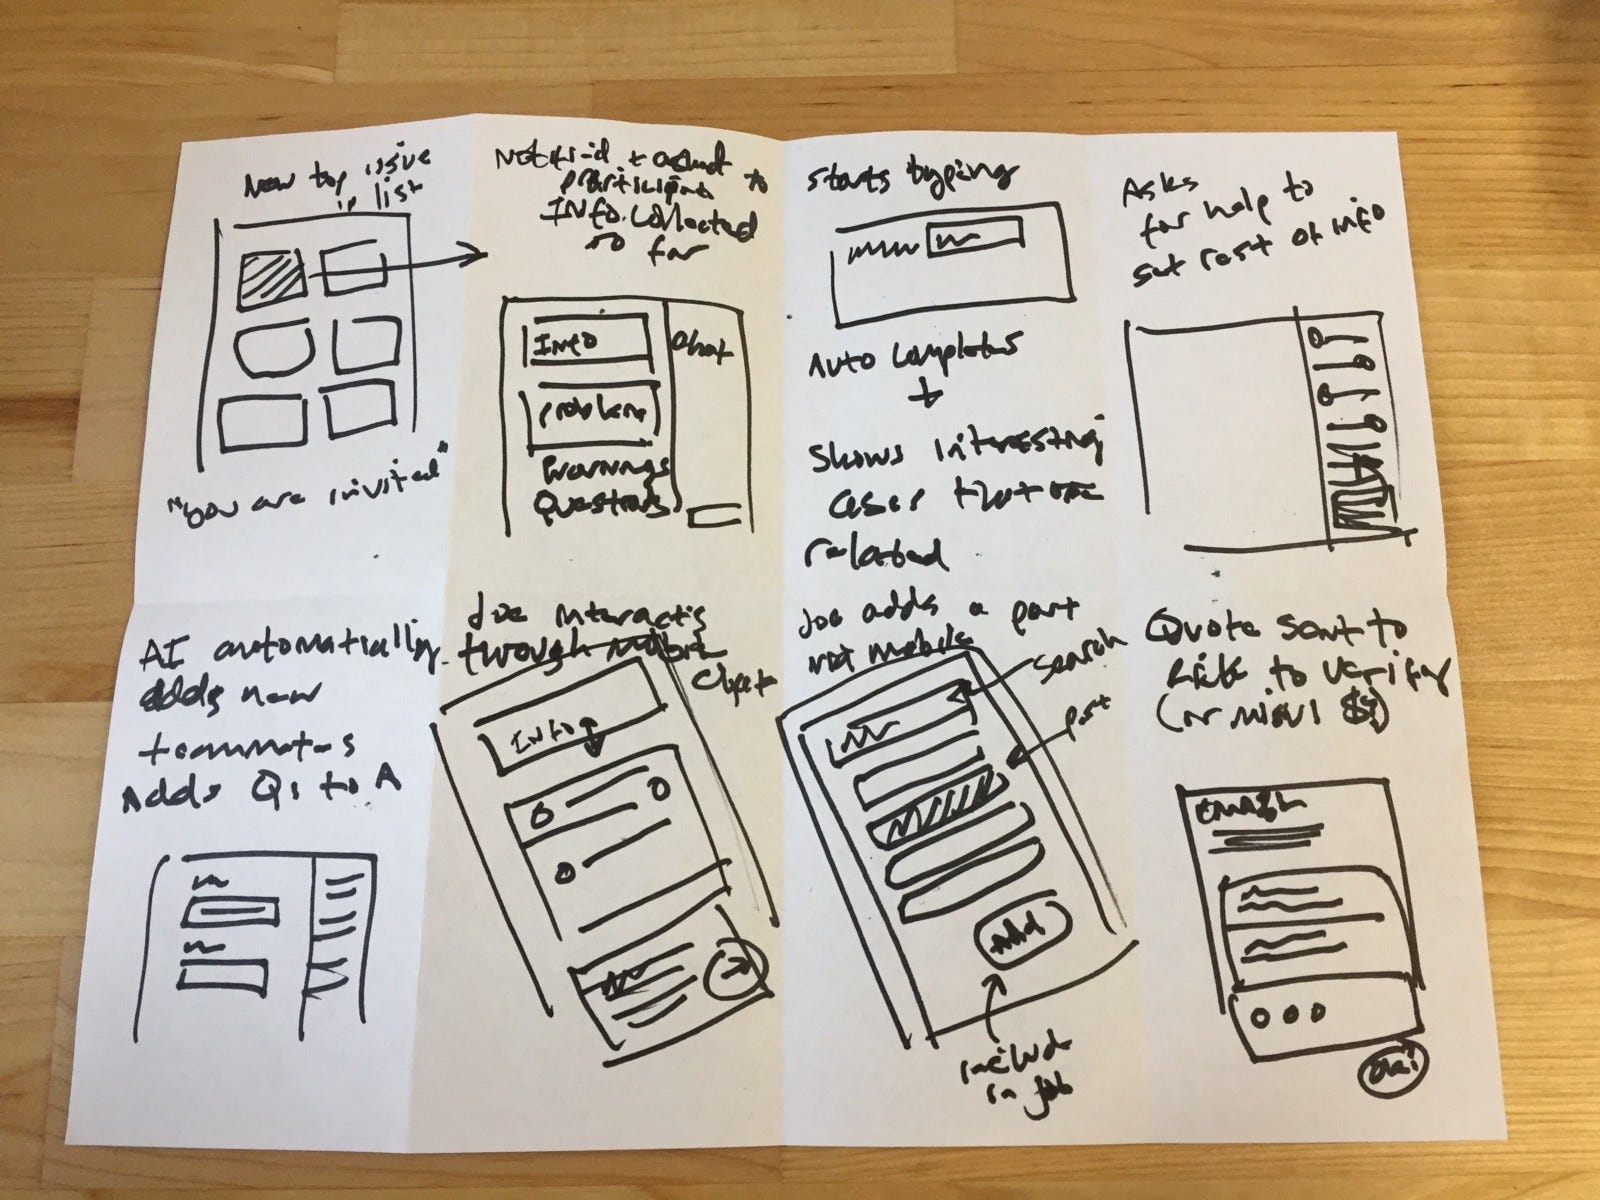 New top issue
in list
"You are invited"
+ asked to
participate
Info. collected
so far
Info
Problem
Warnings
Questions
Chat
Starts typing
Auto completes
+
Shows interesting
cases that are
related
Asks
for help to
rest of info
AI automatically
adds new
teammates
Adds Qs to A
Joe interacts
through mobile
Info
Joe adds a part
via mobile
search
part
Add
include
in job
Quote sent to
to verify
(or minus $$)
Email